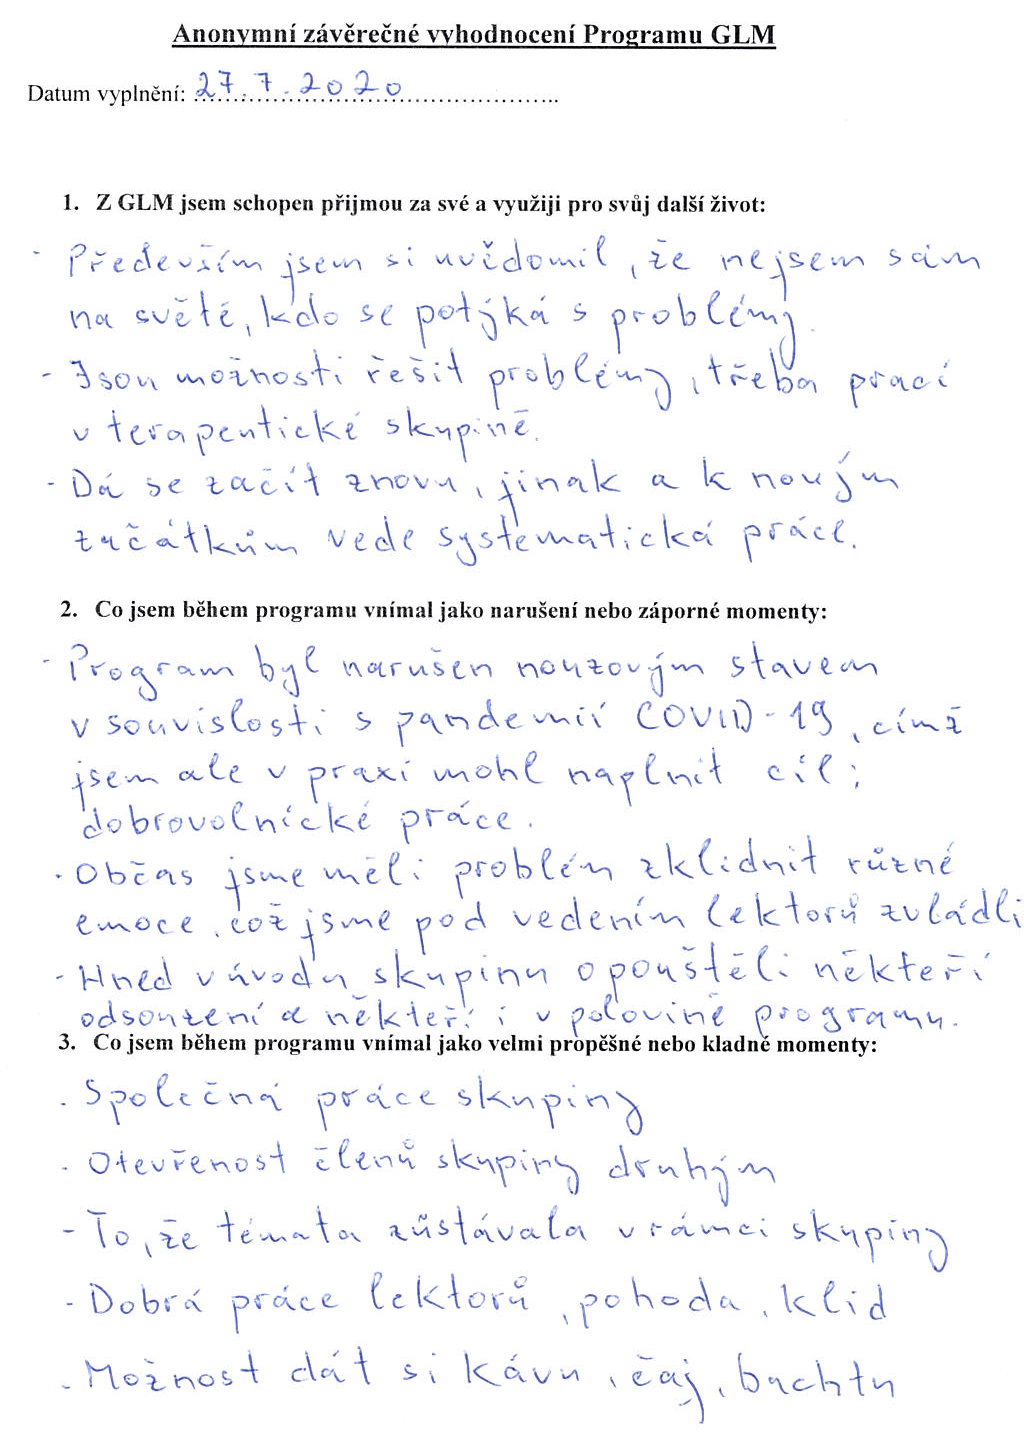 Anonymní závěrečné vyhodnocení Programu GLM
Datum vyplnění: 27.7.2020
1. Z GLM jsem schopen přijmou za své a využiji pro svůj další život:
- Především jsem si uvědomil, že nejsem sám
na světě, kdo se potýká s problémy.
- Jsou možnosti řešit problémy, třeba prací
v terapeutické skupině.
- Dá se začít znovu, jinak a k novým
začátkům vede systematická práce.
2. Co jsem během programu vnímal jako narušení nebo záporné momenty:
- Program byl narušen nouzovým stavem
v souvislosti s pandemií COVID-19, címž
jsem ale v praxi mohl naplnit cíl;
dobrovolnické práce.
- Občas jsme měli problém zklidnit různé
emoce, což jsme pod vedením lektorů zvládli
- Hned v úvodu skupinu opouštěli někteří
odsouzení a někteří i v polovině programu.
3. Co jsem během programu vnímal jako velmi propěšné nebo kladné momenty:
- Společná práce skupiny
- Otevřenost členů skupiny druhým
- To, že témata zůstávala v rámci skupiny
- Dobrá práce lektorů, pohoda, klid
- Možnost dát si kávu, čaj, buchtu